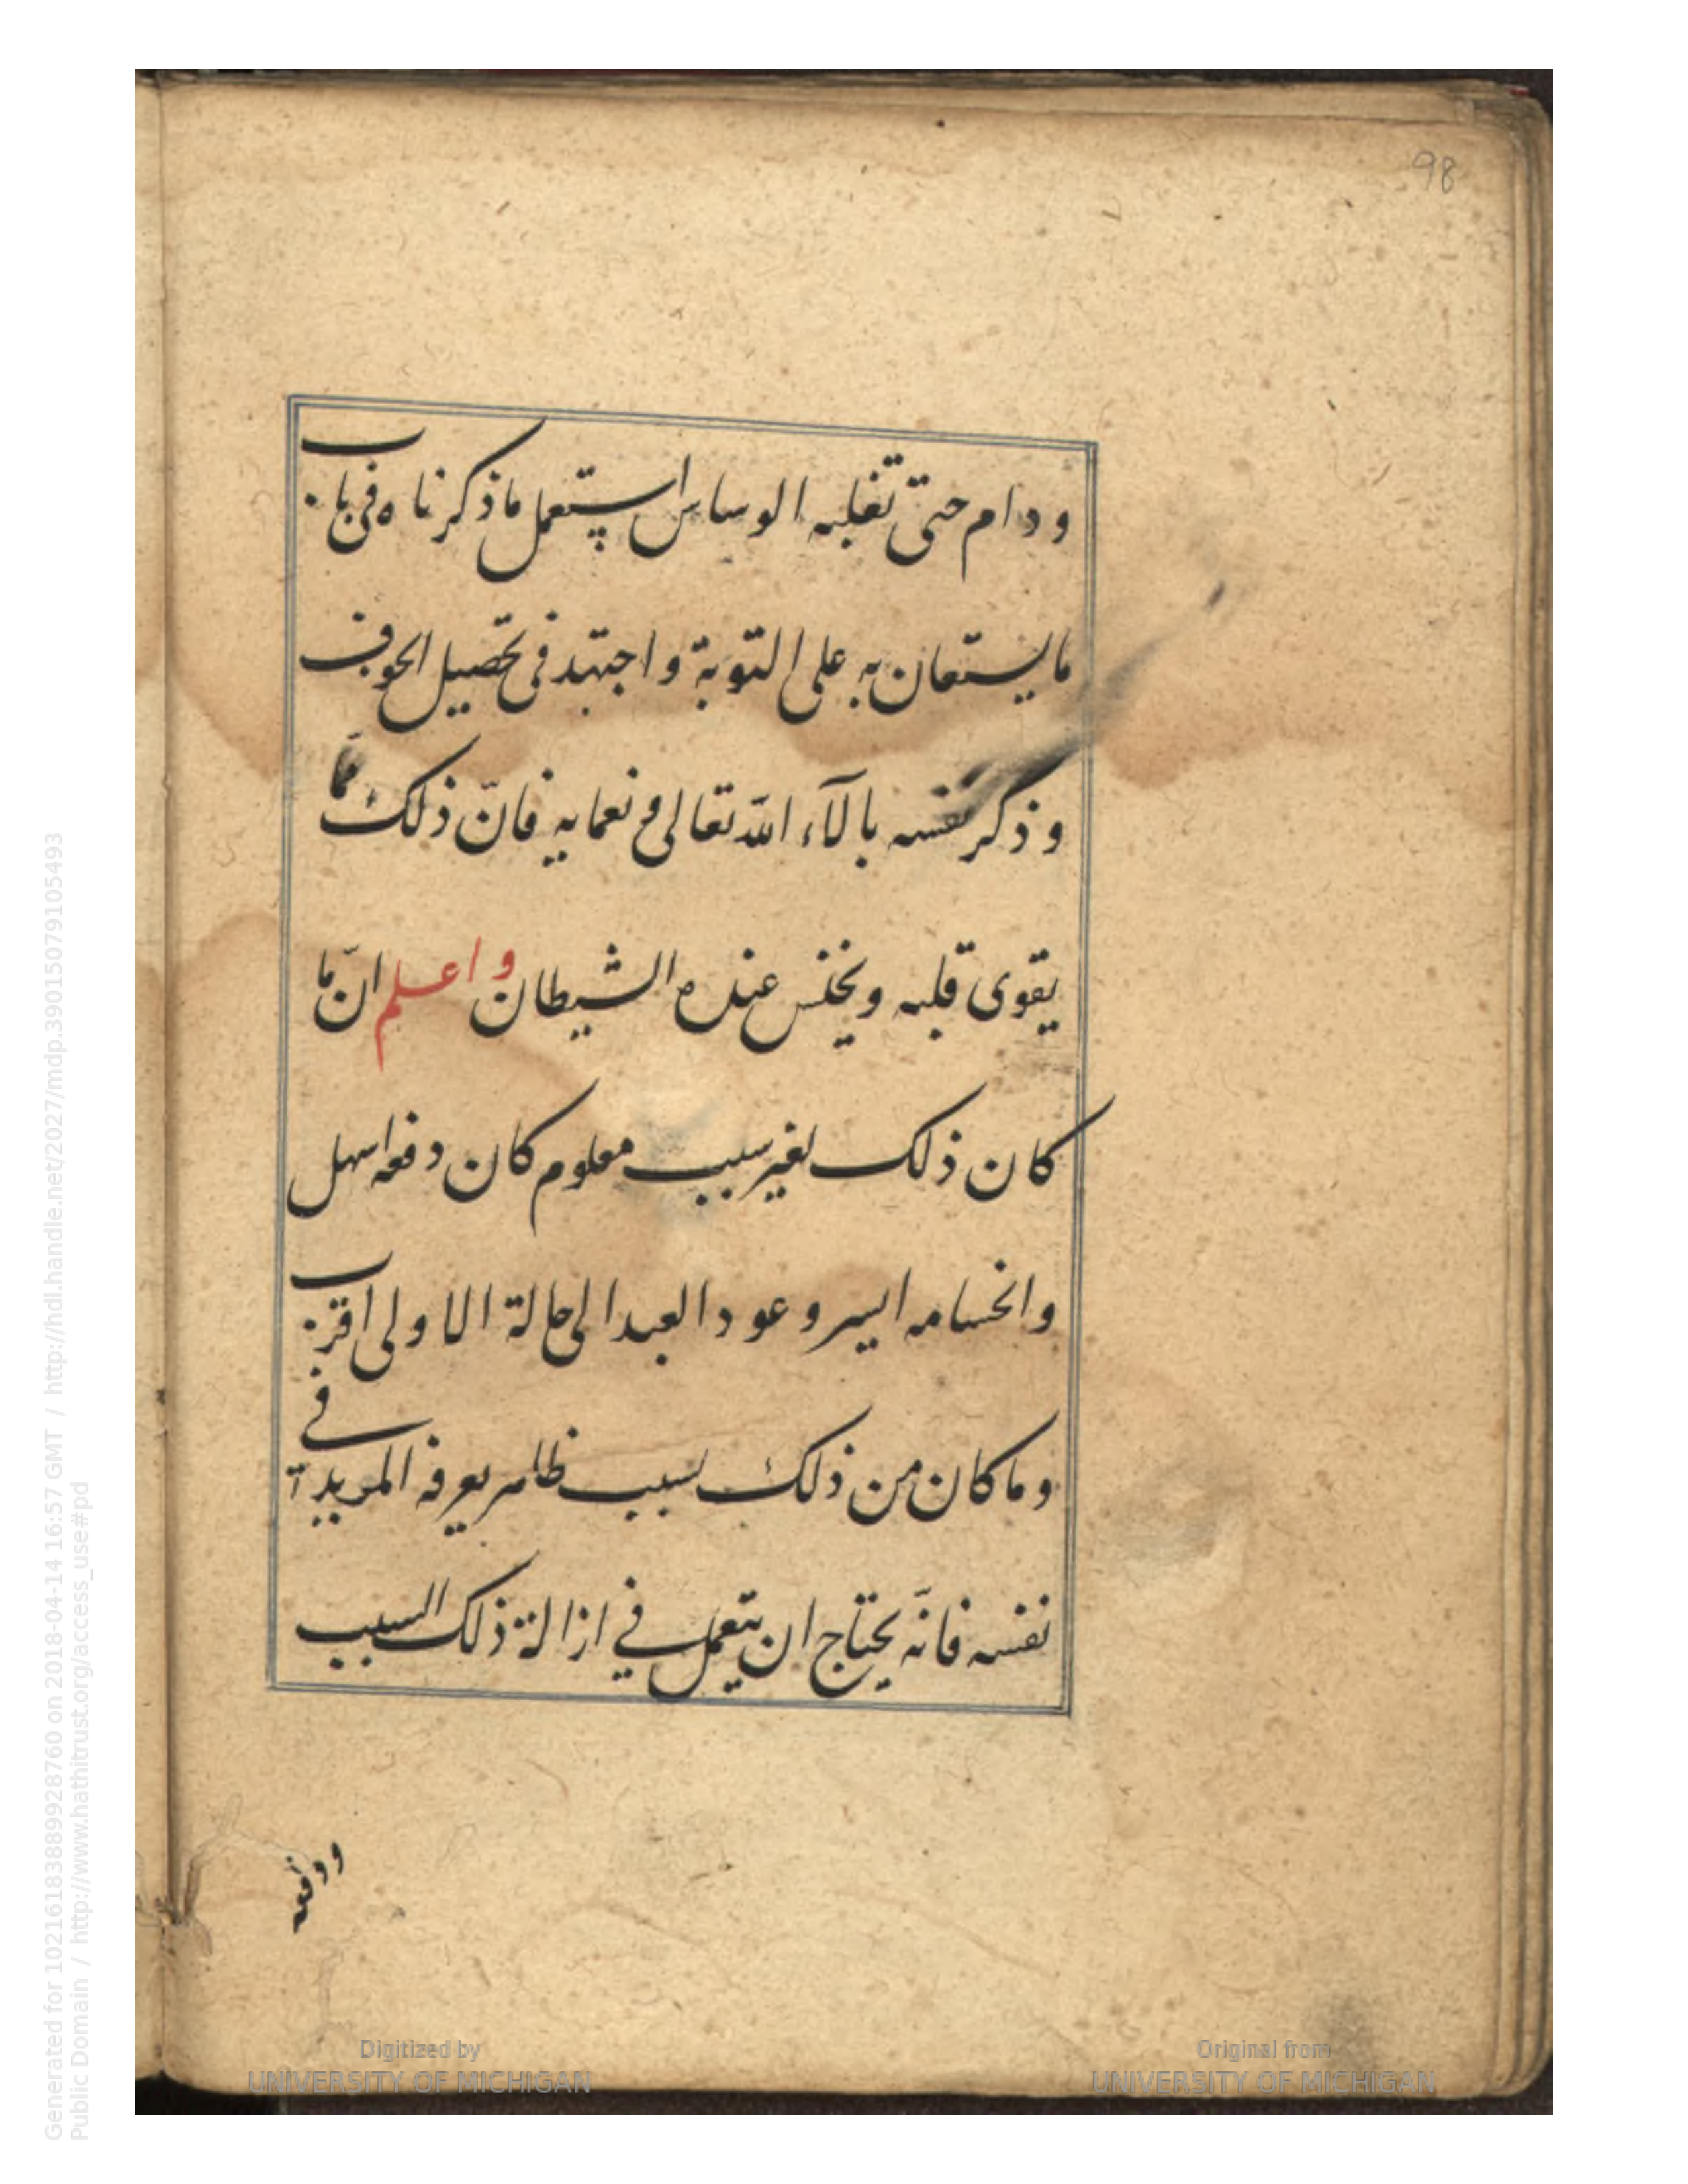 98
ودام حتى تغلبه الوساس استعمل ما ذكرناه في باب
ما يستعان به على التوبة واجتهد في تحصيل الخوف
وذكر نفسه بالآء الله تعالى ونعمايه فانّ ذلك ممّا
يقوى قلبه ويخنس عنده الشيطان واعلم انّ ما
كان ذلك بغير سبب معلوم كان دفعه اسهل
وانحسامه ايسر وعود العبد الى حالة الاولى اقرب
وما كان من ذلك بسبب ظاهر يعرفه المريد في
نفسه فانّه يحتاج ان يتعمل في ازالة ذلك السبب
ودفعه
Digitized by
UNIVERSITY OF MICHIGAN
Original from
UNIVERSITY OF MICHIGAN
Generated for 10216183889928760 on 2018-04-14 16:57 GMT / http://hdl.handle.net/2027/mdp.39015079105493
Public Domain / http://www.hathitrust.org/access_use#pd